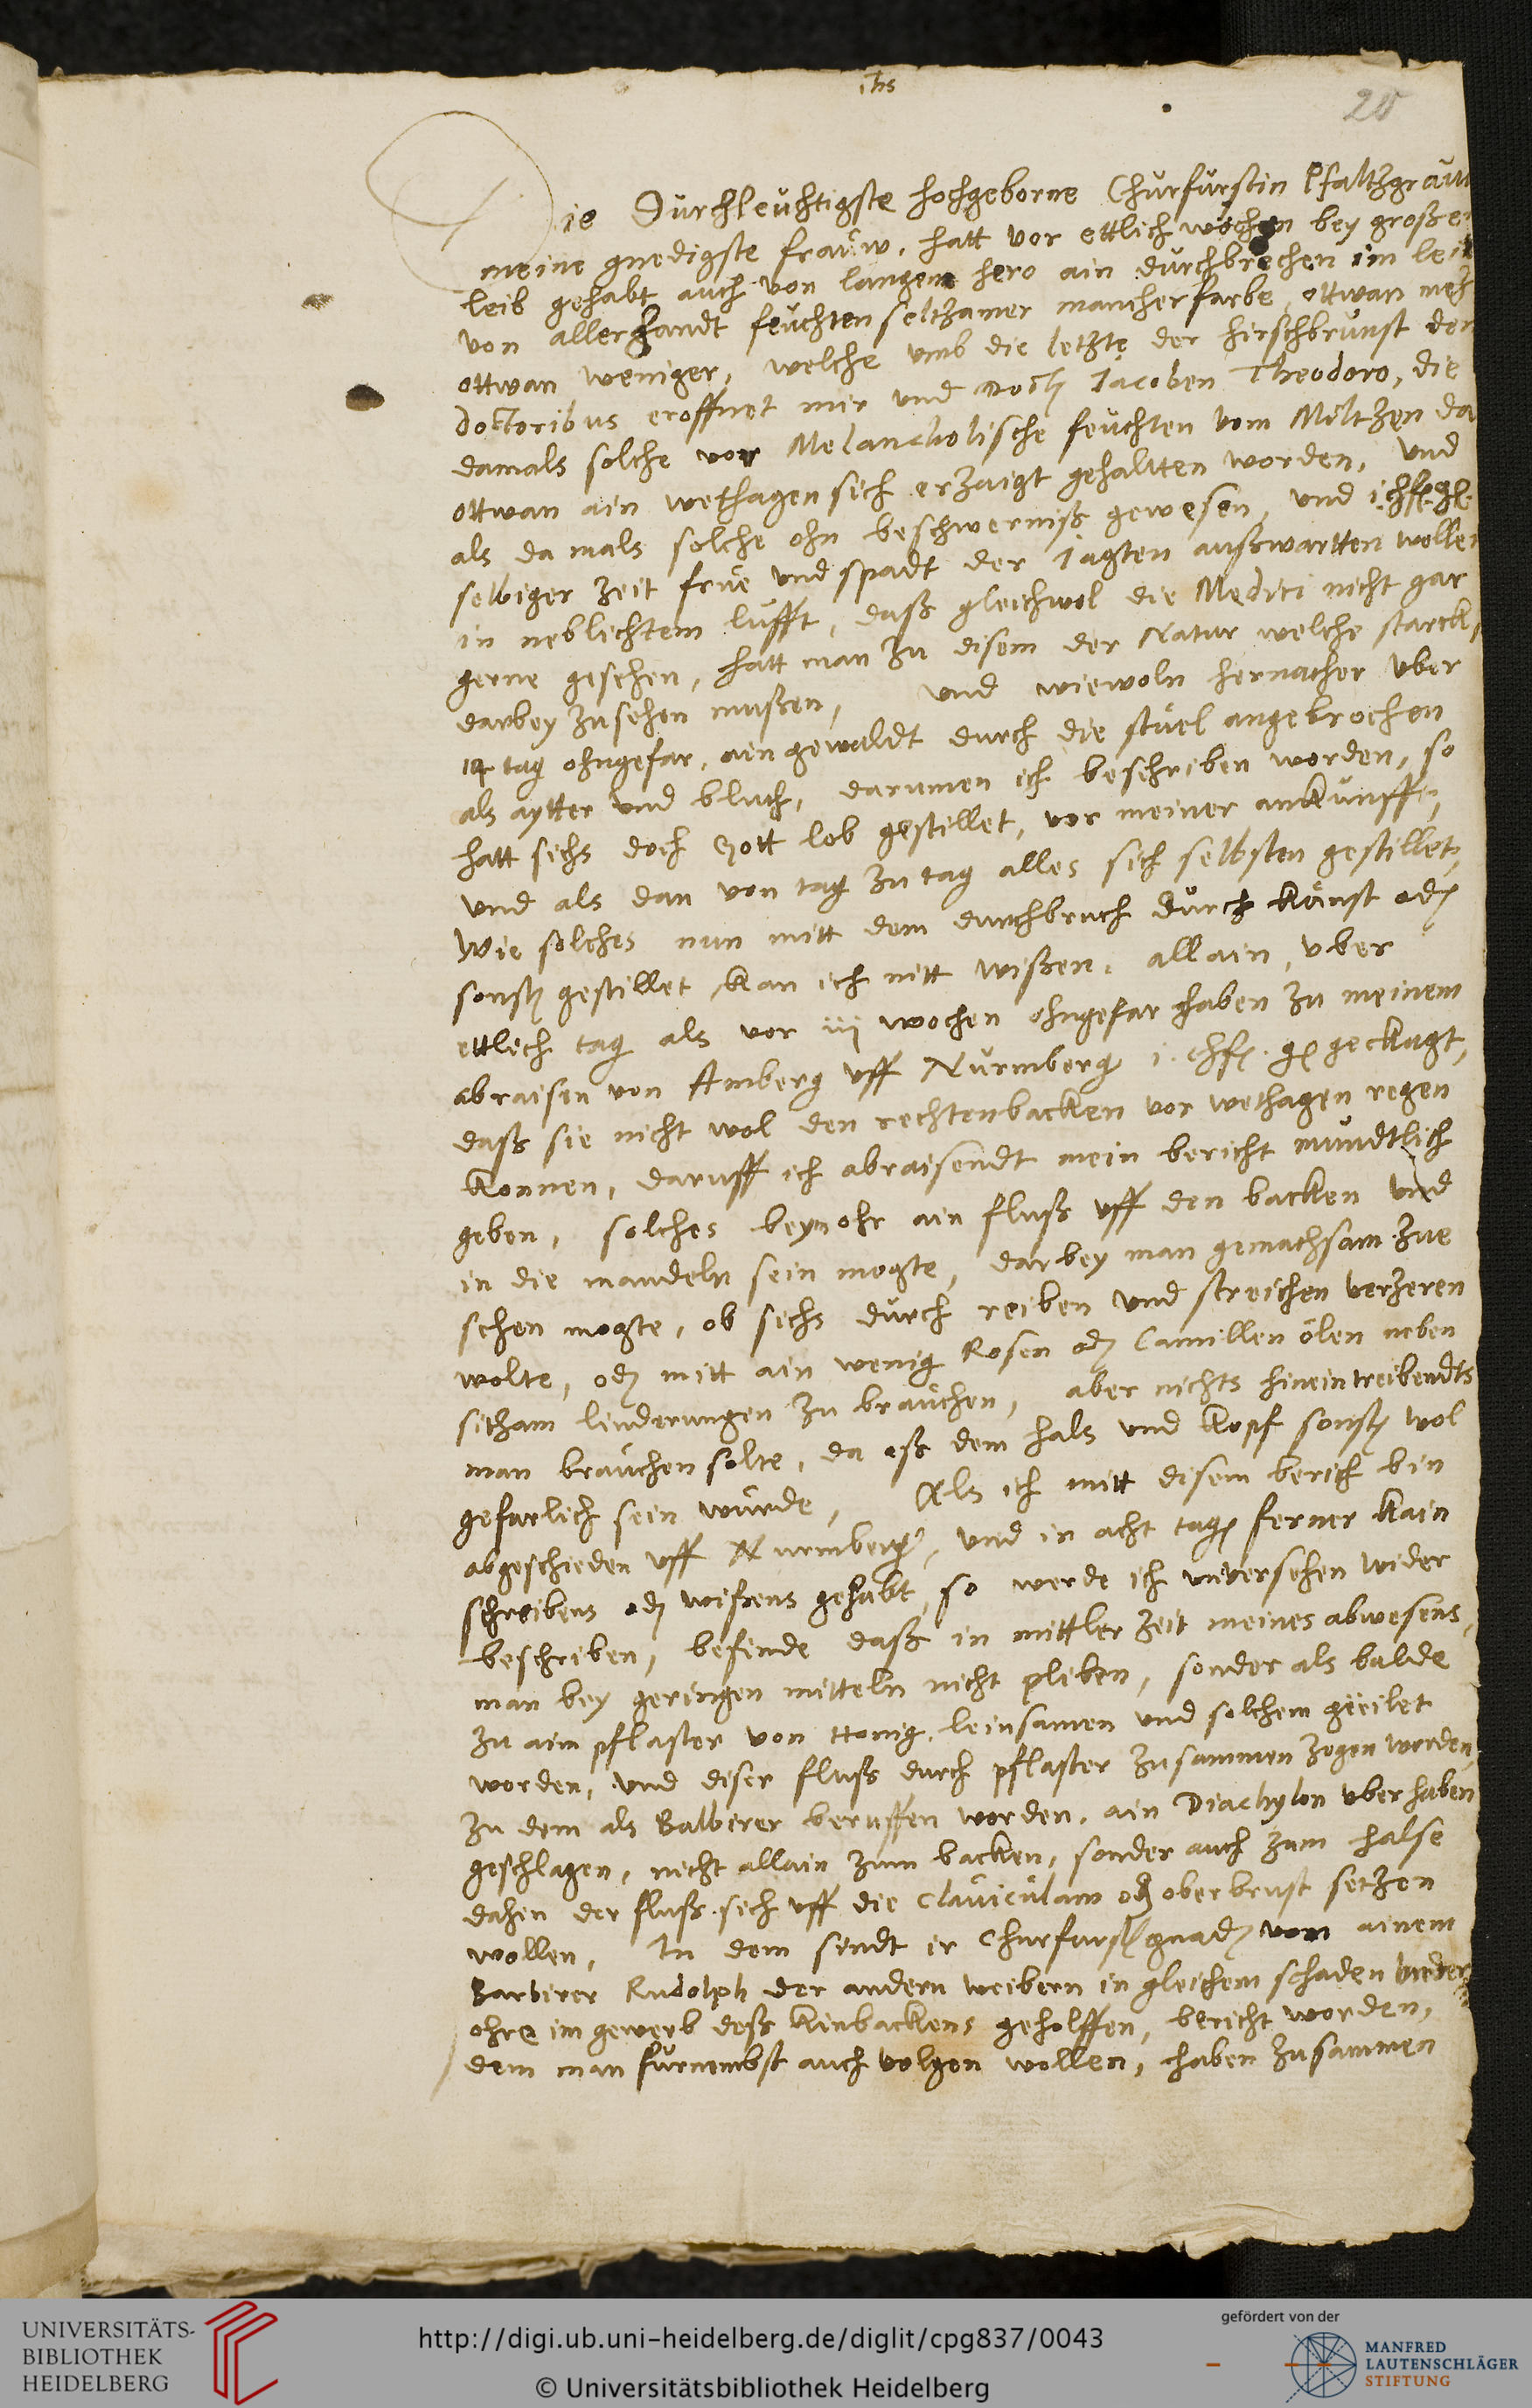 ihs
20
Die Durchleuchtigste hochgeborne Churfurstin Pfaltzgrauin
meine gnedigste frauw, hatt vor ettlich wochen bey großem
leib gehabt auch von langem hero ain durchbrechen im leib
von allerhandt feuchten seltzamer mancher farbe, ettwan mehr
ettwan weniger, welche umb die letzte der hirschbrunst den
doctoribus eroffnet mir und Doctj Jacoben Theodoro, die
damals solche vor Melancholische feuchten vom Miltzen da
ettwan ain wethagen sich erzaigt gehaltten worden, und
als damals solche ohn beschwerniß gewesen, und i. chf. gl.
selbiger Zeit frue und spadt der Jagten außwartten wellen
in neblichtem lufft, daß gleichwol die Medici nicht gar
gerne gesehen, hatt man zu disem der Natur welche starck,
darbey zusehen mußen, und wiewoln hernacher uber
14 tag ohngefar, ain gewaldt durch die stuel angebrochen
als aytter und bluth, darumen ich beschriben worden, so
hatt sichs doch Gott lob gestillet, vor meiner ankunfft,
und als dan von tag zu tag alles sich selbsten gestillet,
Wie solches nun mitt dem durchbruch durch kunst odj
sonstj gestillet, kan ich nitt wißen, allain, uber
ettlich tag als vor iij wochen ohngefar haben zu meinem
abraisen von Amberg uff Nurmberg i. chf. gl geclagt,
daß sie nicht wol den rechten backen vor wethagen regen
konnen, daruff ich abraisendt mein bericht mundtlich
geben, solches beym ohr ain fluß uff den backen und
in die mandeln sein mogte, darbey man gemachsam zue
sehen mogte, ob sichs durch reiben und streichen verzeren
wolte, odj mitt ain wenig Rosen odj Camillen ölen neben
sitzam linderungen zu brauchen, aber nichts hinein treibendts
man brauchen solte, da eß dem hals und kopf sonstj wol
gefarlich sein wurde, Als ich mitt disem bericht bin
abgeschieden uff Nurmberg, und in acht tagj ferner kain
schreibens odj wißens gehabt, so werde ich unversehen wider
beschriben, befinde daß in mittler Zeit meines abwesens,
man bey geringen mitteln nicht pliben, sonder als balde
zu aim pflaster von Honig, leinsamen und solchem geeilet
worden, und diser fluß durch pflaster zusammen zogen werden,
zu dem als Balbirer beruffen worden, ain Diachylon uberhaben
geschlagen, nicht allain zum backen, sonder auch zum halse
dahen der fluß sich uff die Claviculam odj oberbrust setzen
wollen, In dem sindt ir Churfurstl gnadj von ainem
Barbirer Rudolph der andern weibern in gleichem schaden under
ohre im gewerb deß kinbackens geholffen, bericht worden,
dem man furnembst auch volgen wollen, haben zusammen
UNIVERSITÄTS-
BIBLIOTHEK
HEIDELBERG
http://digi.ub.uni-heidelberg.de/diglit/cpg837/0043
© Universitätsbibliothek Heidelberg
gefördert von der
MANFRED
LAUTENSCHLÄGER
STIFTUNG